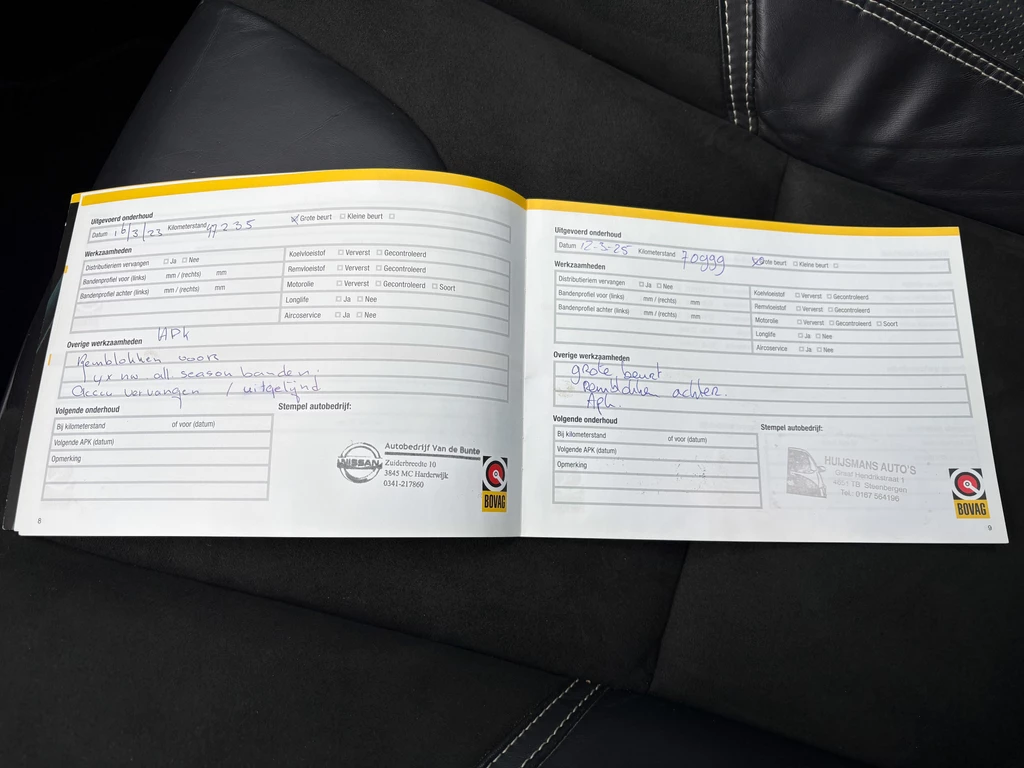 Uitgevoerd onderhoud
Datum 16/3/23 Kilometerstand 47235 Grote beurt Kleine beurt
Werkzaamheden
Distributieriem vervangen Ja Nee
Bandenprofiel voor (links) mm / (rechts) mm
Bandenprofiel achter (links) mm / (rechts) mm
Koelvloeistof Ververst Gecontroleerd
Remvloeistof Ververst Gecontroleerd
Motorolie Ververst Gecontroleerd Soort
Longlife Ja Nee
Aircoservice Ja Nee
Overige werkzaamheden APK
Remblokken voor
4x nw all season banden.
Accu vervangen / uitgelijnd
Volgende onderhoud
Bij kilometerstand of voor (datum)
Volgende APK (datum)
Opmerking
Stempel autobedrijf:
NISSAN
Autobedrijf Van de Bunte
Zuiderbreedte 10
3845 MC Harderwijk
0341-217860
BOVAG
8
Uitgevoerd onderhoud
Datum 12-3-25 Kilometerstand 70999 Grote beurt Kleine beurt
Werkzaamheden
Distributieriem vervangen Ja Nee
Bandenprofiel voor (links) mm / (rechts) mm
Bandenprofiel achter (links) mm / (rechts) mm
Koelvloeistof Ververst Gecontroleerd
Remvloeistof Ververst Gecontroleerd
Motorolie Ververst Gecontroleerd Soort
Longlife Ja Nee
Aircoservice Ja Nee
Overige werkzaamheden
grote beurt
achter.
Apk.
Volgende onderhoud
Bij kilometerstand of voor (datum)
Volgende APK (datum)
Opmerking
Stempel autobedrijf:
HUIJSMANS AUTO'S
Graaf Hendrikstraat 1
4651 TB Steenbergen
Tel. 0167 564196
BOVAG
9